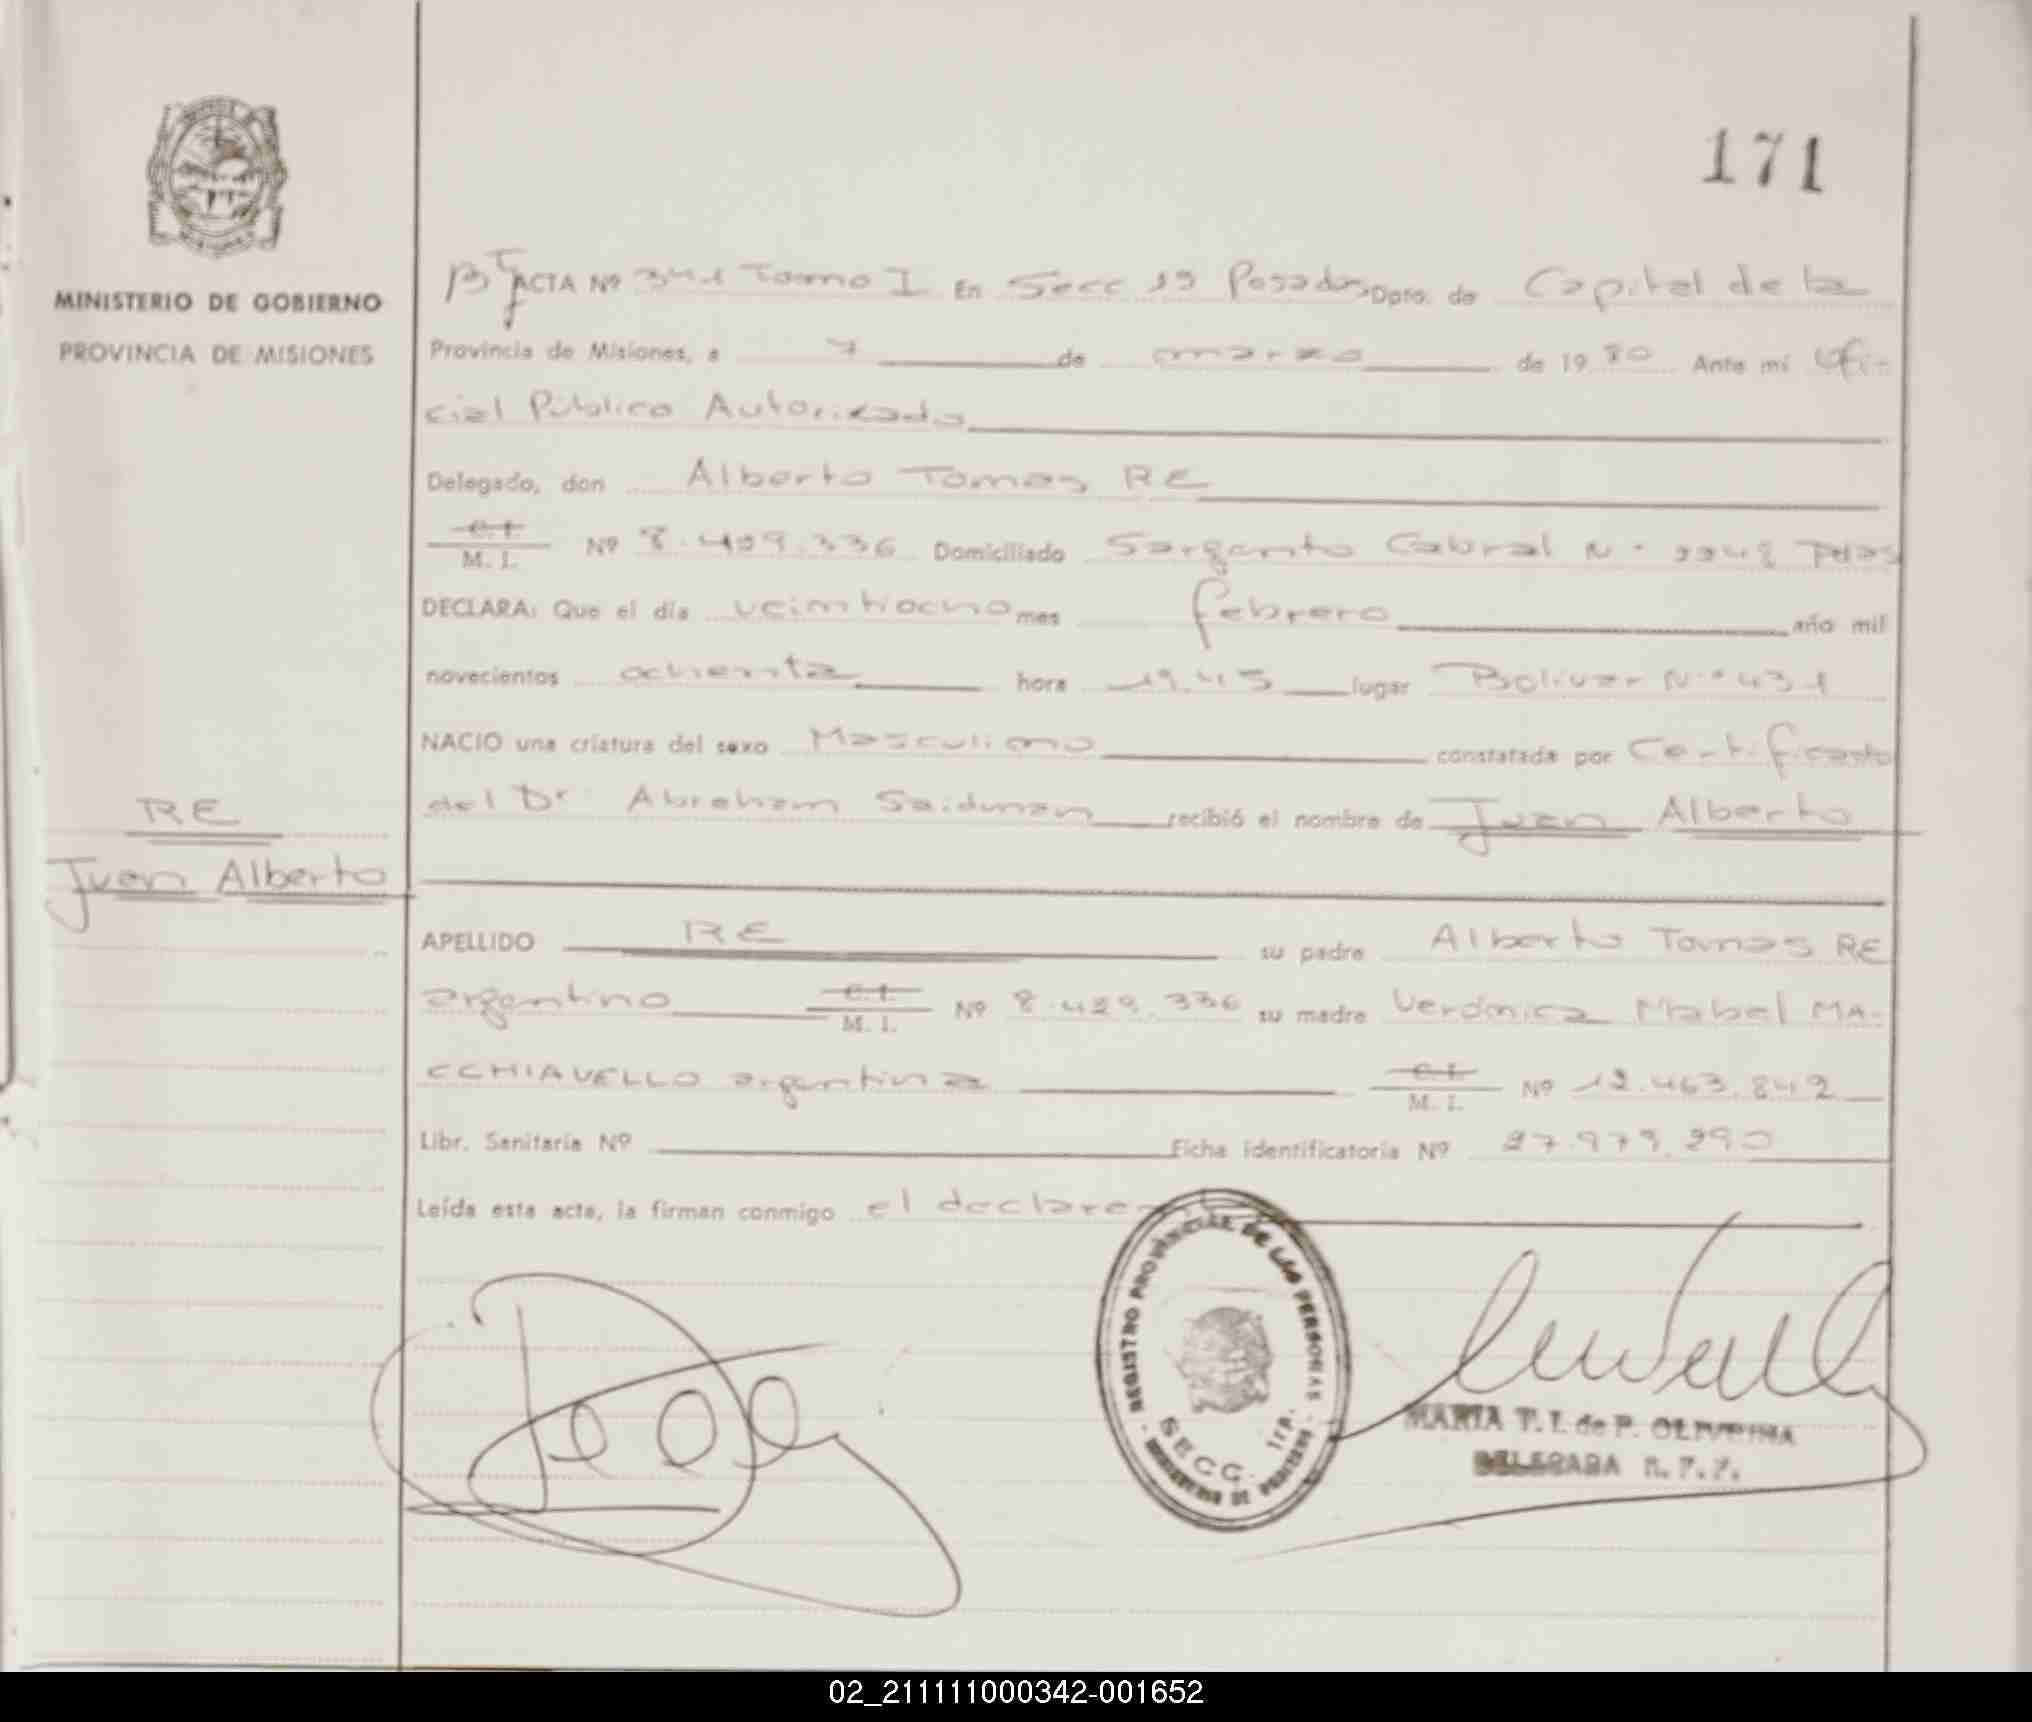 171
MINISTERIO DE GOBIERNO
PROVINCIA DE MISIONES
ACTA Nº 341 Tomo I En Secc 1ª Posadas Dpto. de Capital de la
Provincia de Misiones, a 7 de marzo de 1980 Ante mí Ofi-
cial Público Autorizado
Delegado, don Alberto Tomas RE
C. I.
M. I. Nº Domiciliado Sargento Cabral Nº Pdas
DECLARA: Que el día veintiocho mes febrero año mil
novecientos ochenta hora 19.45 lugar Bolivar Nº 431
NACIO una criatura del sexo Masculino constatada por Certificado
del Dr. Abraham Saidman recibió el nombre de Juan Alberto
RE
Juan Alberto
APELLIDO RE su padre Alberto Tomas RE
argentino C. I.
M. I. Nº 8.429.336 su madre Verónica Mabel MA-
CCHIAVELLO argentina C. I.
M. I. Nº 12.463.842
Libr. Sanitaria Nº Ficha identificatoria Nº 27.979.290
Leída esta acta, la firman conmigo el declarante
REGISTRO PROVINCIAL DE LAS PERSONAS
SECC. 1ra.
MINISTERIO DE GOBIERNO
MARIA T. I. de P. OLIVEIRA
DELEGADA R. P. P.
02_211111000342-001652